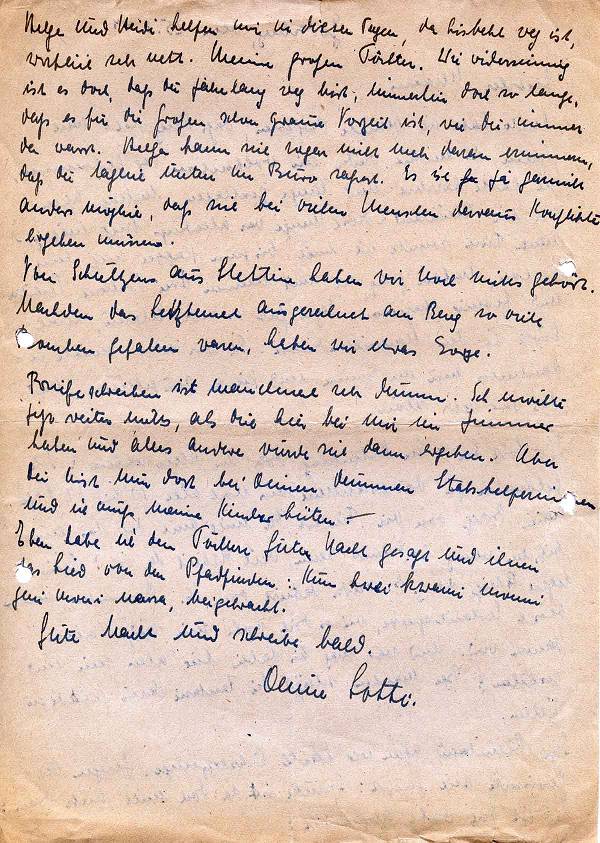 Helga und Heidi helfen mir in diesen Tagen, da Lisbeth weg ist,
wirklich sehr nett. Meine großen Töchter. Wie widersinnig
ist es doch, daß Du jahrelang weg bist, immerhin doch so lange,
daß es für die Großen schon graue Vorzeit ist, wie Du immer
da warst. Helga kann sich sogar nicht mehr daran erinnern,
daß Du täglich unten im Büro saßest. Es ist ja gar nicht
anders möglich, daß sich bei vielen Menschen daraus Konflikte
ergeben müssen.
Von Schultzens aus Stettin haben wir noch nichts gehört.
Nachdem das Letztemal ausgerechnet am Berg so viele
Bomben gefallen waren, haben wir etwas Sorge.
Briefeschreiben ist manchmal sehr dumm. Ich wollte
jetzt weiter nichts, als Dich hier bei mir im Zimmer
haben und alles andere würde sich dann ergeben. Aber
Du bist nun dort bei Deinen dummen Stabshelferinnen
und ich muß meine Kinder hüten –
Eben habe ich den Töchtern Guten Nacht gesagt und ihnen
das Lied von den Pfadfindern: Kum zwei kwami
beigebracht.
Gute Nacht und schreibe bald.
Deine Lotti.